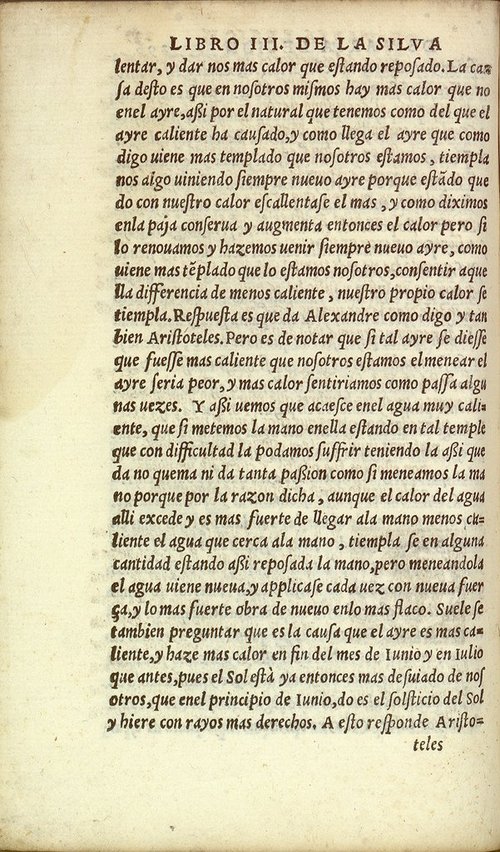 LIBRO III. DE LA SILVA
lentar, y dar nos mas calor que eſtando repoſado. La cau=
ſa deſto es que en noſotros miſmos hay mas calor que no
enel ayre, aßi por el natural que tenemos como del que el
ayre caliente ha cauſado, y como llega el ayre que como
digo uiene mas templado que noſotros eſtamos, tiempla
nos algo uiniendo ſiempre nueuo ayre porque eſtãdo que
do con nueſtro calor eſcallentaſe el mas, y como diximos
enla paja conſerua y augmenta entonces el calor pero ſi
lo renouamos y hazemos uenir ſiempre nueuo ayre, como
uiene mas tẽplado que lo eſtamos noſotros, conſentir aque
lla differencia de menos caliente, nueſtro propio calor ſe
tiempla. Reſpueſta es que da Alexandre como digo y tan
bien Ariſtoteles. Pero es de notar que ſi tal ayre ſe dieſſe
que fueſſe mas caliente que noſotros eſtamos el menear el
ayre ſeria peor, y mas calor ſentiriamos como paſſa algu
nas uezes. Y aßi uemos que acaeſce enel agua muy cali=
ente, que ſi metemos la mano enella eſtando en tal temple
que con difficultad la podamos ſuffrir teniendo la aßi que
da no quema ni da tanta paßion como ſi meneamos la ma
no porque por la razon dicha, aunque el calor del agua
alli excede y es mas fuerte de llegar ala mano menos ca=
liente el agua que cerca ala mano, tiempla ſe en alguna
cantidad eſtando aßi repoſada la mano, pero meneandola
el agua uiene nueua, y applicaſe cada uez con nueua fuer
ça, y lo mas fuerte obra de nueuo enlo mas flaco. Sueleſe
tambien preguntar que es la cauſa que el ayre es mas ca=
liente, y haze mas calor en fin del mes de Iunio y en Iulio
que antes, pues el Sol eſtà ya entonces mas deſuiado de noſ
otros, que enel principio de Iunio, do es el ſolſticio del Sol
y hiere con rayos mas derechos. A eſto reſponde Ariſto=
teles